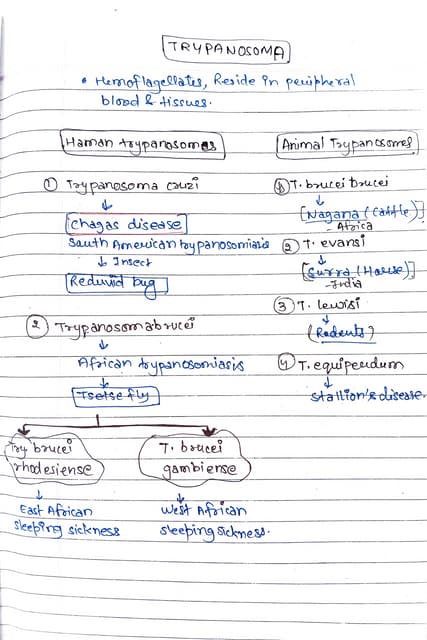 TRYPANOSOMA
• Hemoflagellates, Reside in peripheral
blood & tissues.
Human trypanosomes
① Trypanosoma cruzi
↓
Chagas disease
South American trypanosomiasis
↓ Insect
Reduvid bug
② Trypanosoma brucei
↓
African trypanosomiasis
↓
Tsetse fly
Try brucei
rhodesiense
↓
East African
sleeping sickness
T. brucei
gambiense
↓
West African
sleeping sickness.
Animal Trypanosomes
① T. brucei brucei
↓
[Nagana (Cattle)]
- Africa
② T. evansi
↓
[Surra (Horse)]
- India
③ T. lewisi
↓
(Rodents)
④ T. equiperdum
↓
Stallion's disease.